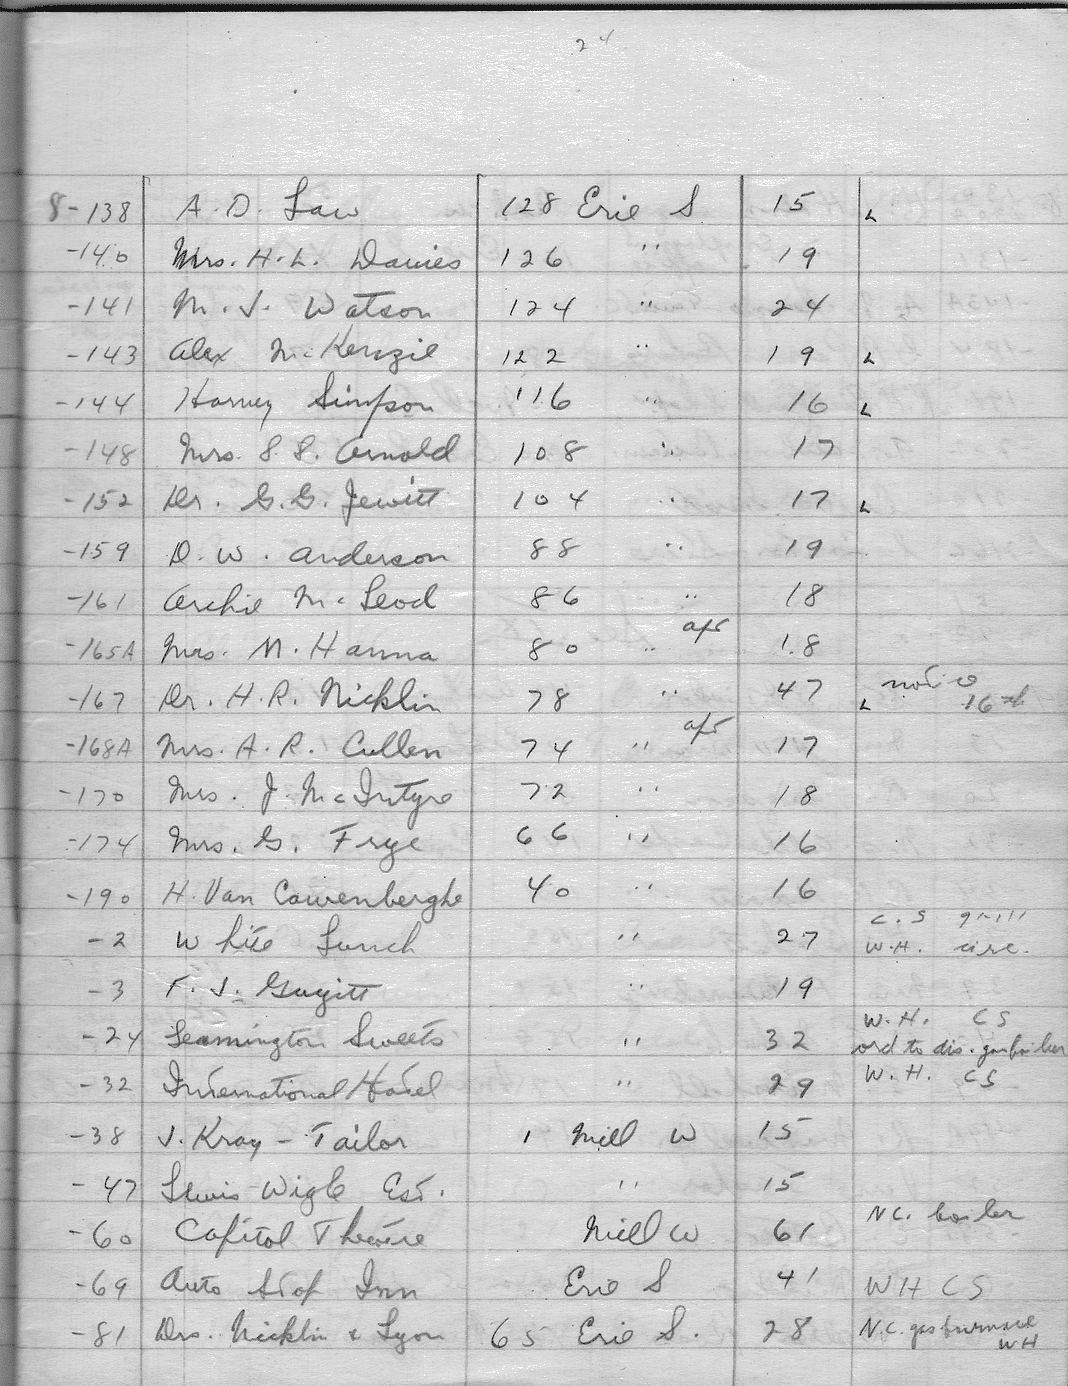 24
8-138 A. D. Law 128 Erie S 15 L
-140 Mrs. H. L. Davies 126 " 19
-141 M. J. Watson 124 " 24
-143 Alex McKenzie 122 " 19 L
-144 Harvey Simpson 116 " 16 L
-148 Mrs. S. S. Arnold 108 " 17
-152 Dr. G. G. Jewitt 104 " 17 L
-159 D. W. Anderson 88 " 19
-161 Archie McLeod 86 " 18
-165A Mrs. M. Hanna 80 " apt 18
-167 Dr. H. R. Nicklin 78 " 47 L notice 16th
-168A Mrs. A. R. Cullen 74 " apt 17
-170 Mrs. J. McIntyre 72 " 18
-174 Mrs. G. Frye 66 " 16
-190 H. Van Cauwenberghe 40 " 16
-2 White Lunch " 27 C.S grill W.H. circ.
-3 F. J. " 19
-24 Leamington Sweets " 32 W.H. CS ord to dis. gas boiler
-32 International Hotel " 29 W.H. CS
-38 J. Kray - Tailor 1 Mill W 15
-47 Lewis Wigle Est. " 15
-60 Capitol Theatre Mill W 61 N.C. boiler
-69 Auto Stop Inn Erie S 41 WH CS
-81 Drs. Nicklin & Lyon 65 Erie S. 28 N.C. gas furnace WH